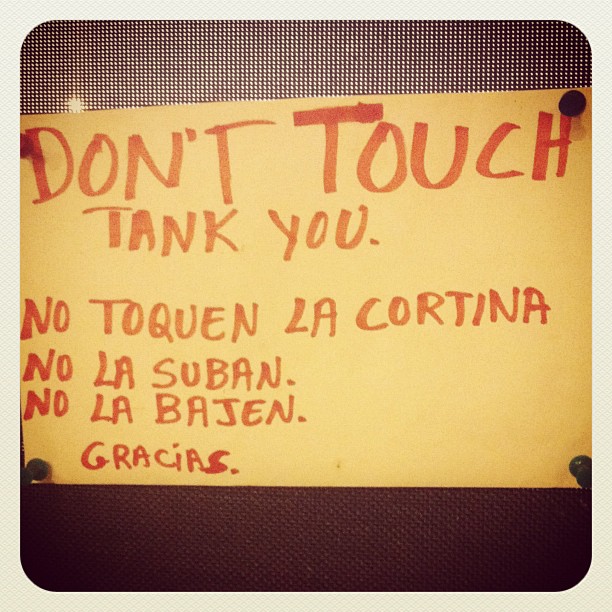 DON'T TOUCH
TANK YOU.
NO TOQUEN LA CORTINA
NO LA SUBAN.
NO LA BAJEN.
GRACiAS.